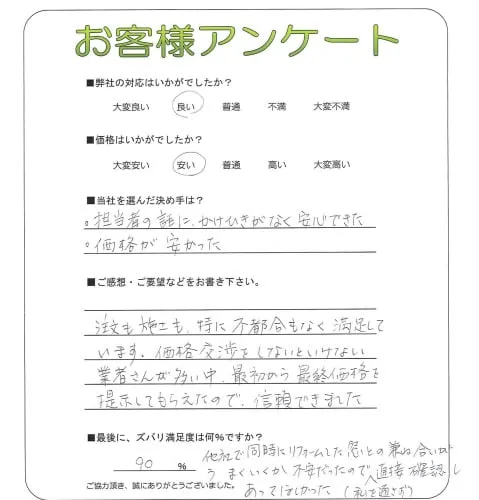 お客様アンケート
■弊社の対応はいかがでしたか？
大変良い 良い 普通 不満 大変不満
■価格はいかがでしたか？
大変安い 安い 普通 高い 大変高い
■当社を選んだ決め手は？
。担当者の話に、かけひきがなく安心できた
。価格が安かった
■ご感想・ご要望などをお書き下さい。
注文も施工も、特に不都合もなく満足して
います。価格交渉をしないといけない
業者さんが多い中、最初から最終価格を
提示してもらえたので、信頼できました
■最後に、ズバリ満足度は何%ですか？
90 %
他社で同時にリフォームした との兼ね合いが
うまくいくか不安だったので、直接確認し
あってほしかった（私を通さず）
ご協力頂き、誠にありがとうございました。